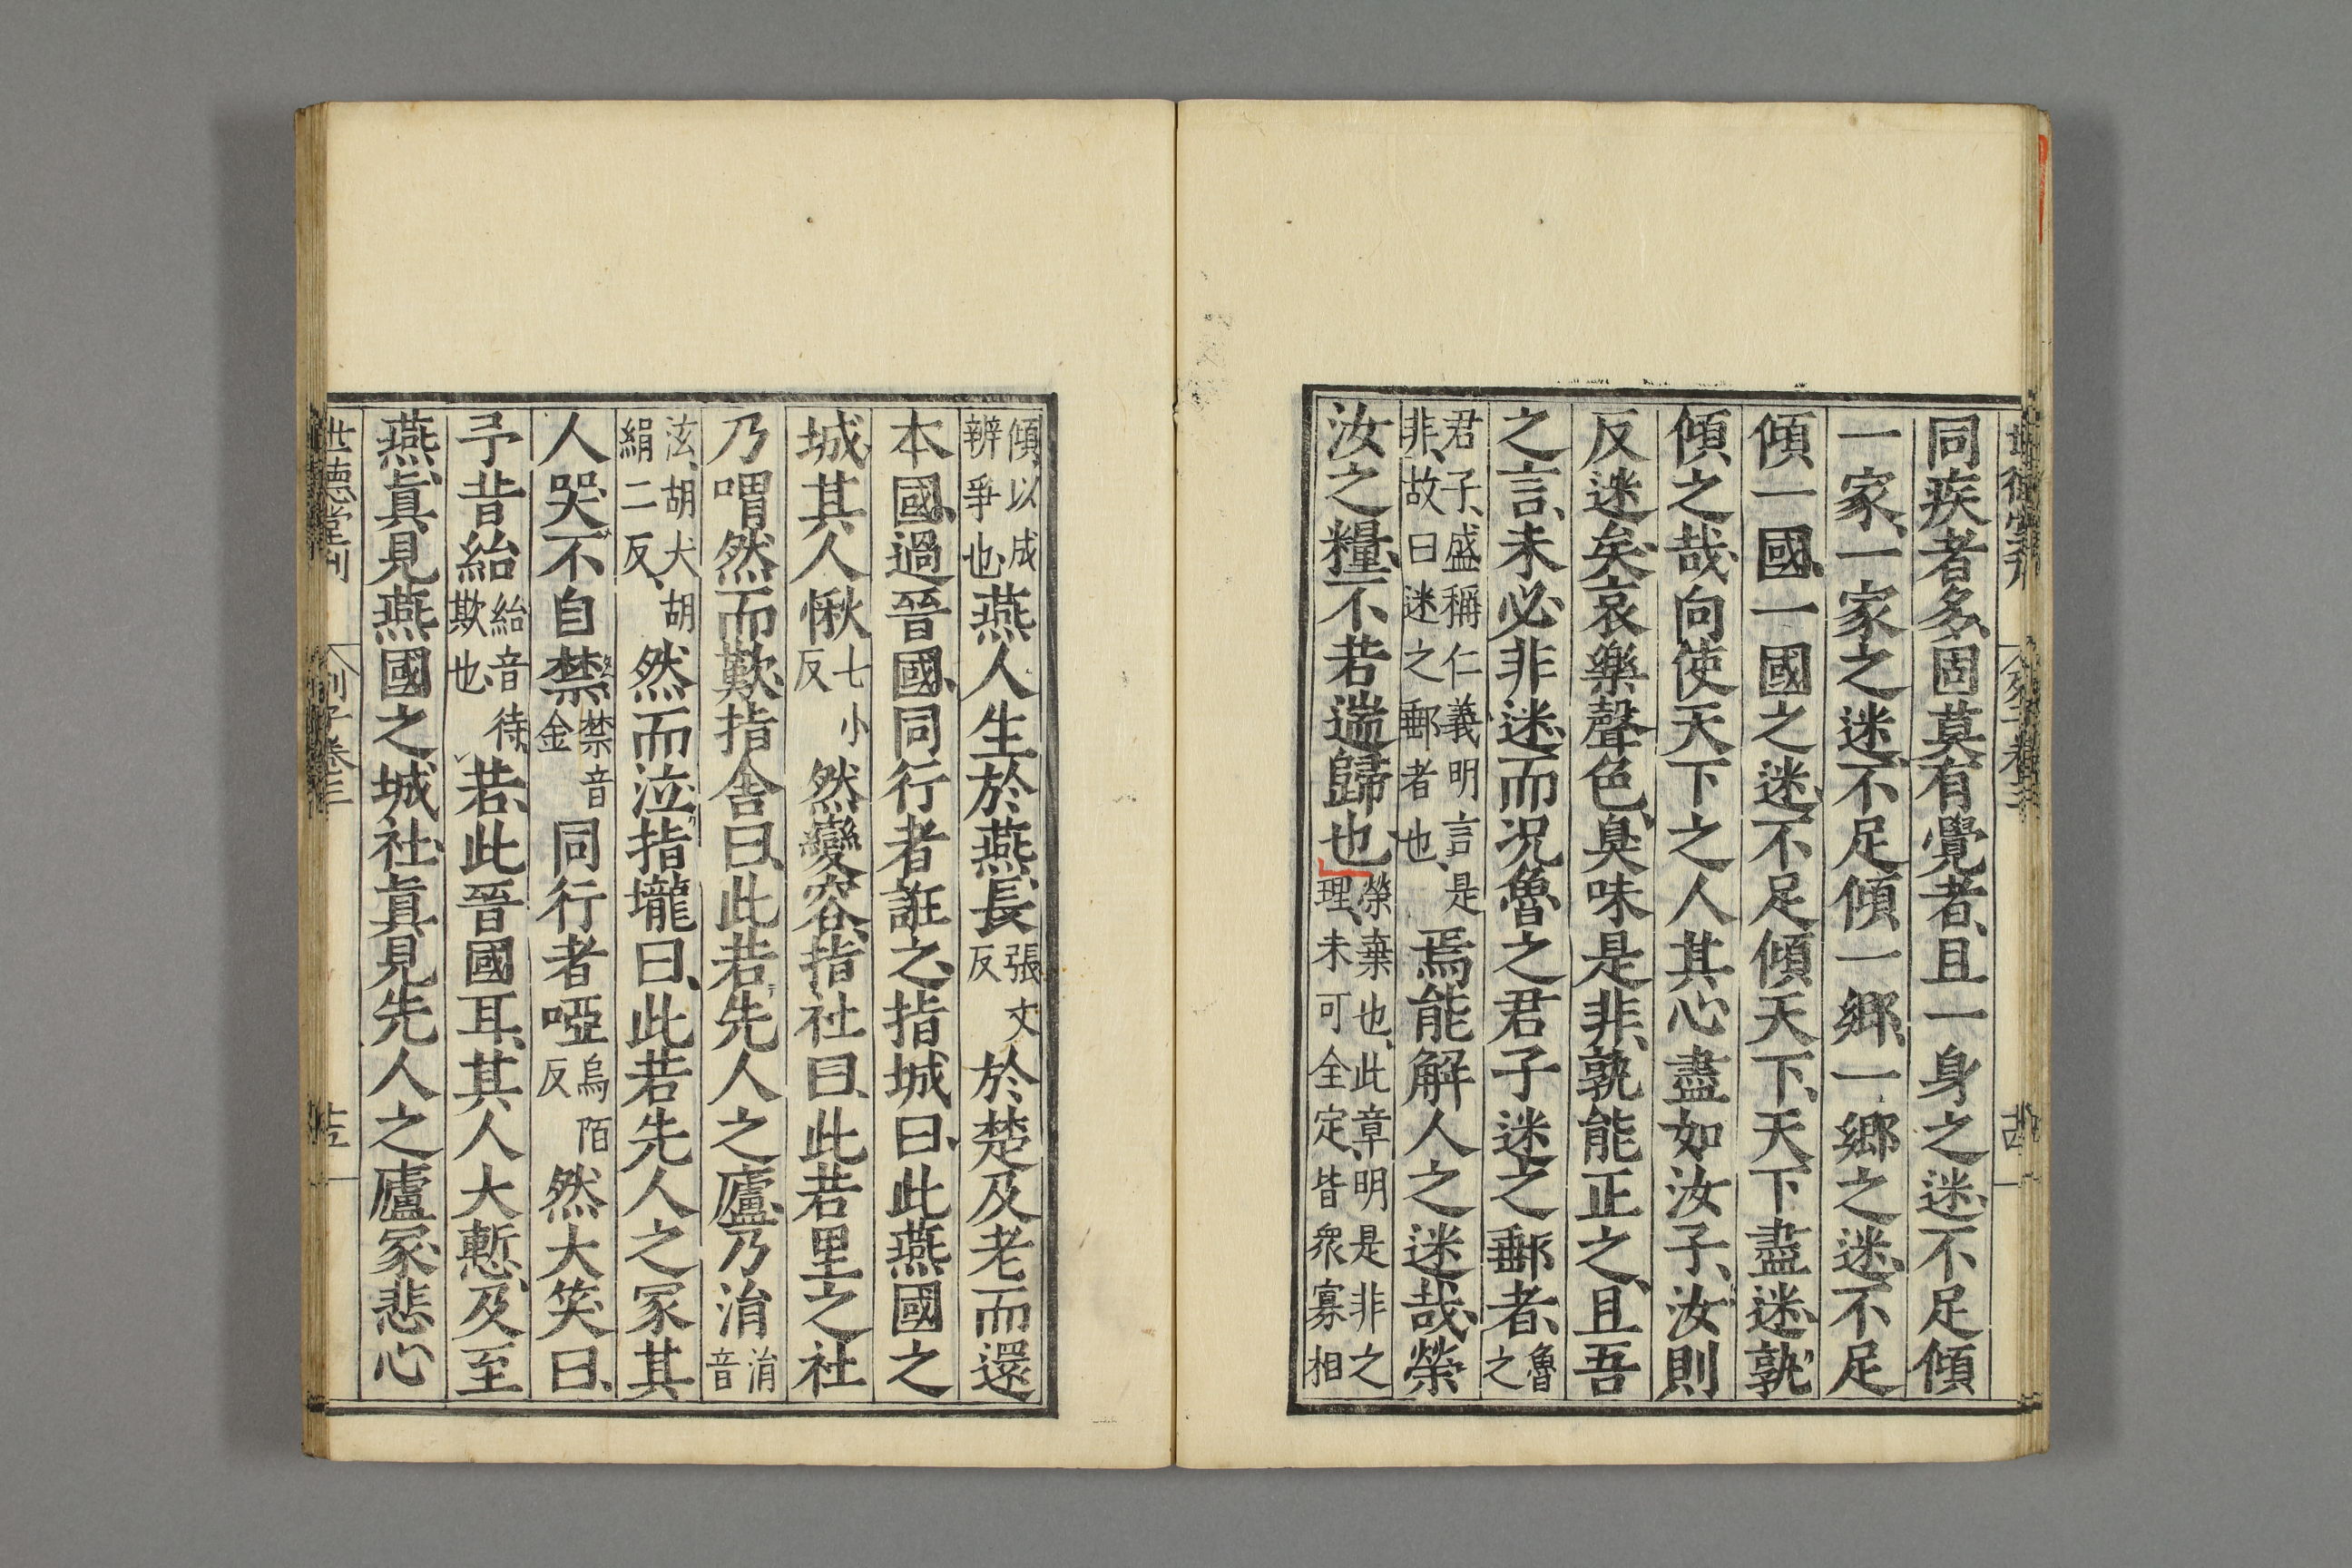 同疾者多、固莫有覺者、且一身之迷、不足傾
一家、一家之迷、不足傾一鄉、一鄉之迷、不足
傾一國、一國之迷、不足傾天下、天下盡迷、孰
傾之哉、向使天下之人其心盡如汝子、汝則
反迷矣、哀樂聲色、臭味是非、孰能正之、且吾
之言、未必非迷、而況魯之君子迷之郵者、魯之
君子、盛稱仁義明言是非、故曰迷之郵者也、焉能解人之迷哉、榮
汝之糧、不若遄歸也、榮棄也、此章、明是非之理、未可全定皆衆寡相
傾、以成辨爭也、燕人生於燕、長張丈反於楚及老而還
本國、過晉國、同行者誑之、指城曰、此燕國之
城、其人愀七小反然變容、指社曰、此若里之社
乃喟然而歎、指舍曰、此若先人之廬、乃涓涓音
泫、胡犬胡絹二反、然而泣、指壠曰、此若先人之冢、其
人哭、不自禁、禁音金同行者啞烏陌反然大笑曰、
予昔紿紿音待、欺也、若、此晉國耳、其人大慙、及至
燕、眞見燕國之城社、眞見先人之廬冢、悲心
世德堂刊
列子卷三